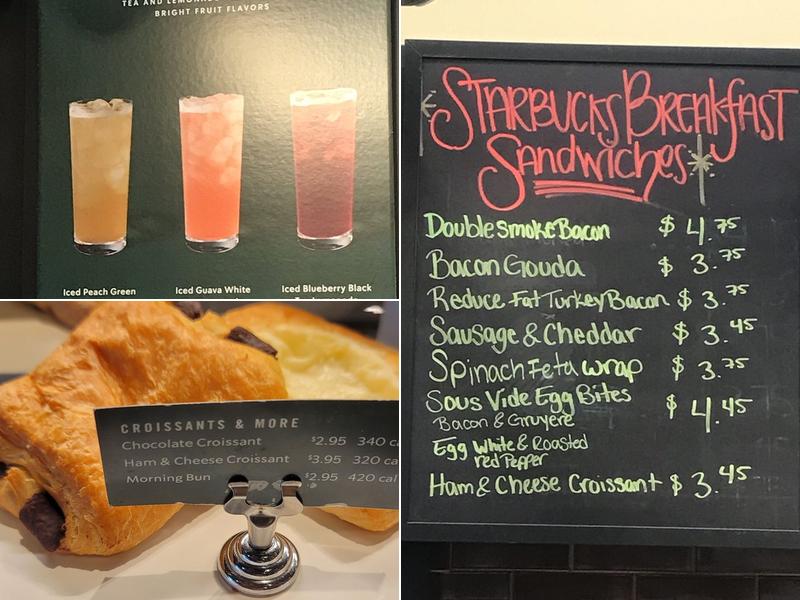 TEA AND LEMONADE
BRIGHT FRUIT FLAVORS
Iced Peach Green
Iced Guava White
Iced Blueberry Black
STARBUCKS BREAKFAST
SANDWICHES
Double smoke Bacon $ 4.75
Bacon Gouda $ 3.75
Reduce Fat Turkey Bacon $ 3.75
Sausage & Cheddar $ 3.45
Spinach Feta wrap $ 3.75
Sous Vide Egg Bites $ 4.45
Bacon & Gruyere
Egg White & Roasted
red Pepper
Ham & Cheese Croissant $ 3.45
CROISSANTS & MORE
Chocolate Croissant $2.95 340 ca
Ham & Cheese Croissant $3.95 320 ca
Morning Bun $2.95 420 cal